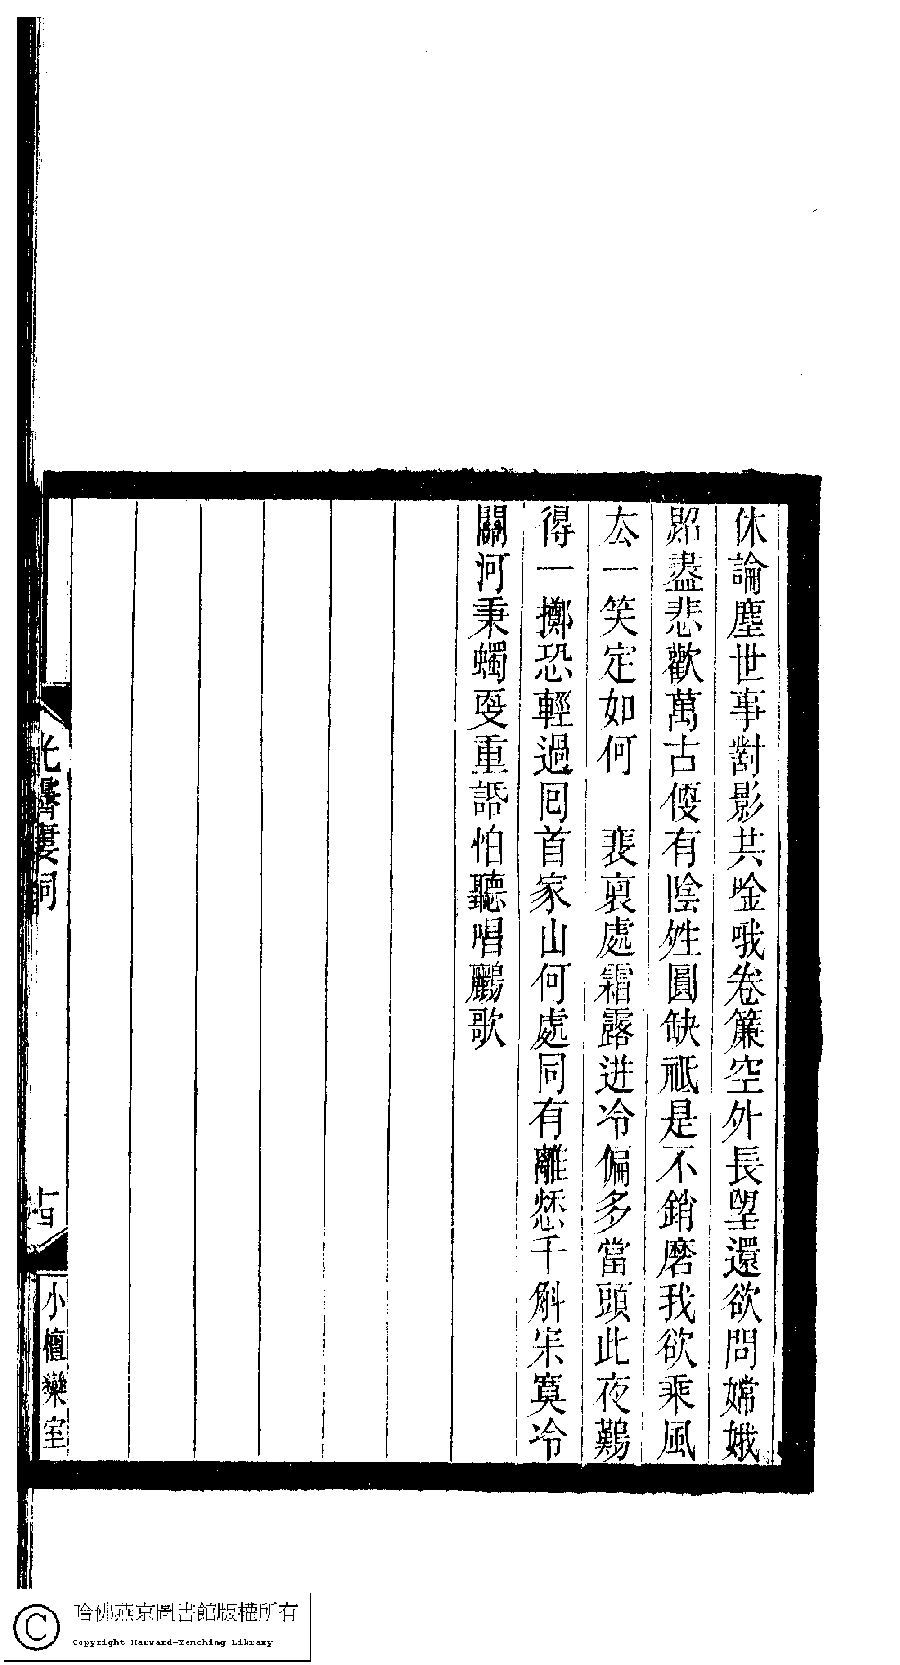 休論塵世事對影共唫哦卷簾空外長望還欲問嫦娥
照盡悲歡萬古偠有陰姓圓缺祗是不銷磨我欲乘風
厺一笑定如何　裴裒處霜露迸冷偏多當頭此夜鷄
得一擲恐輕過囘首家山何處同有離愁千斛寀寞冷
關河秉蠋㪅重語怕聽唱鸝歌
光霽廔詞
十四
小檀欒室
哈佛燕京圖書館版權所有
Copyright Harvard-Yenching Library